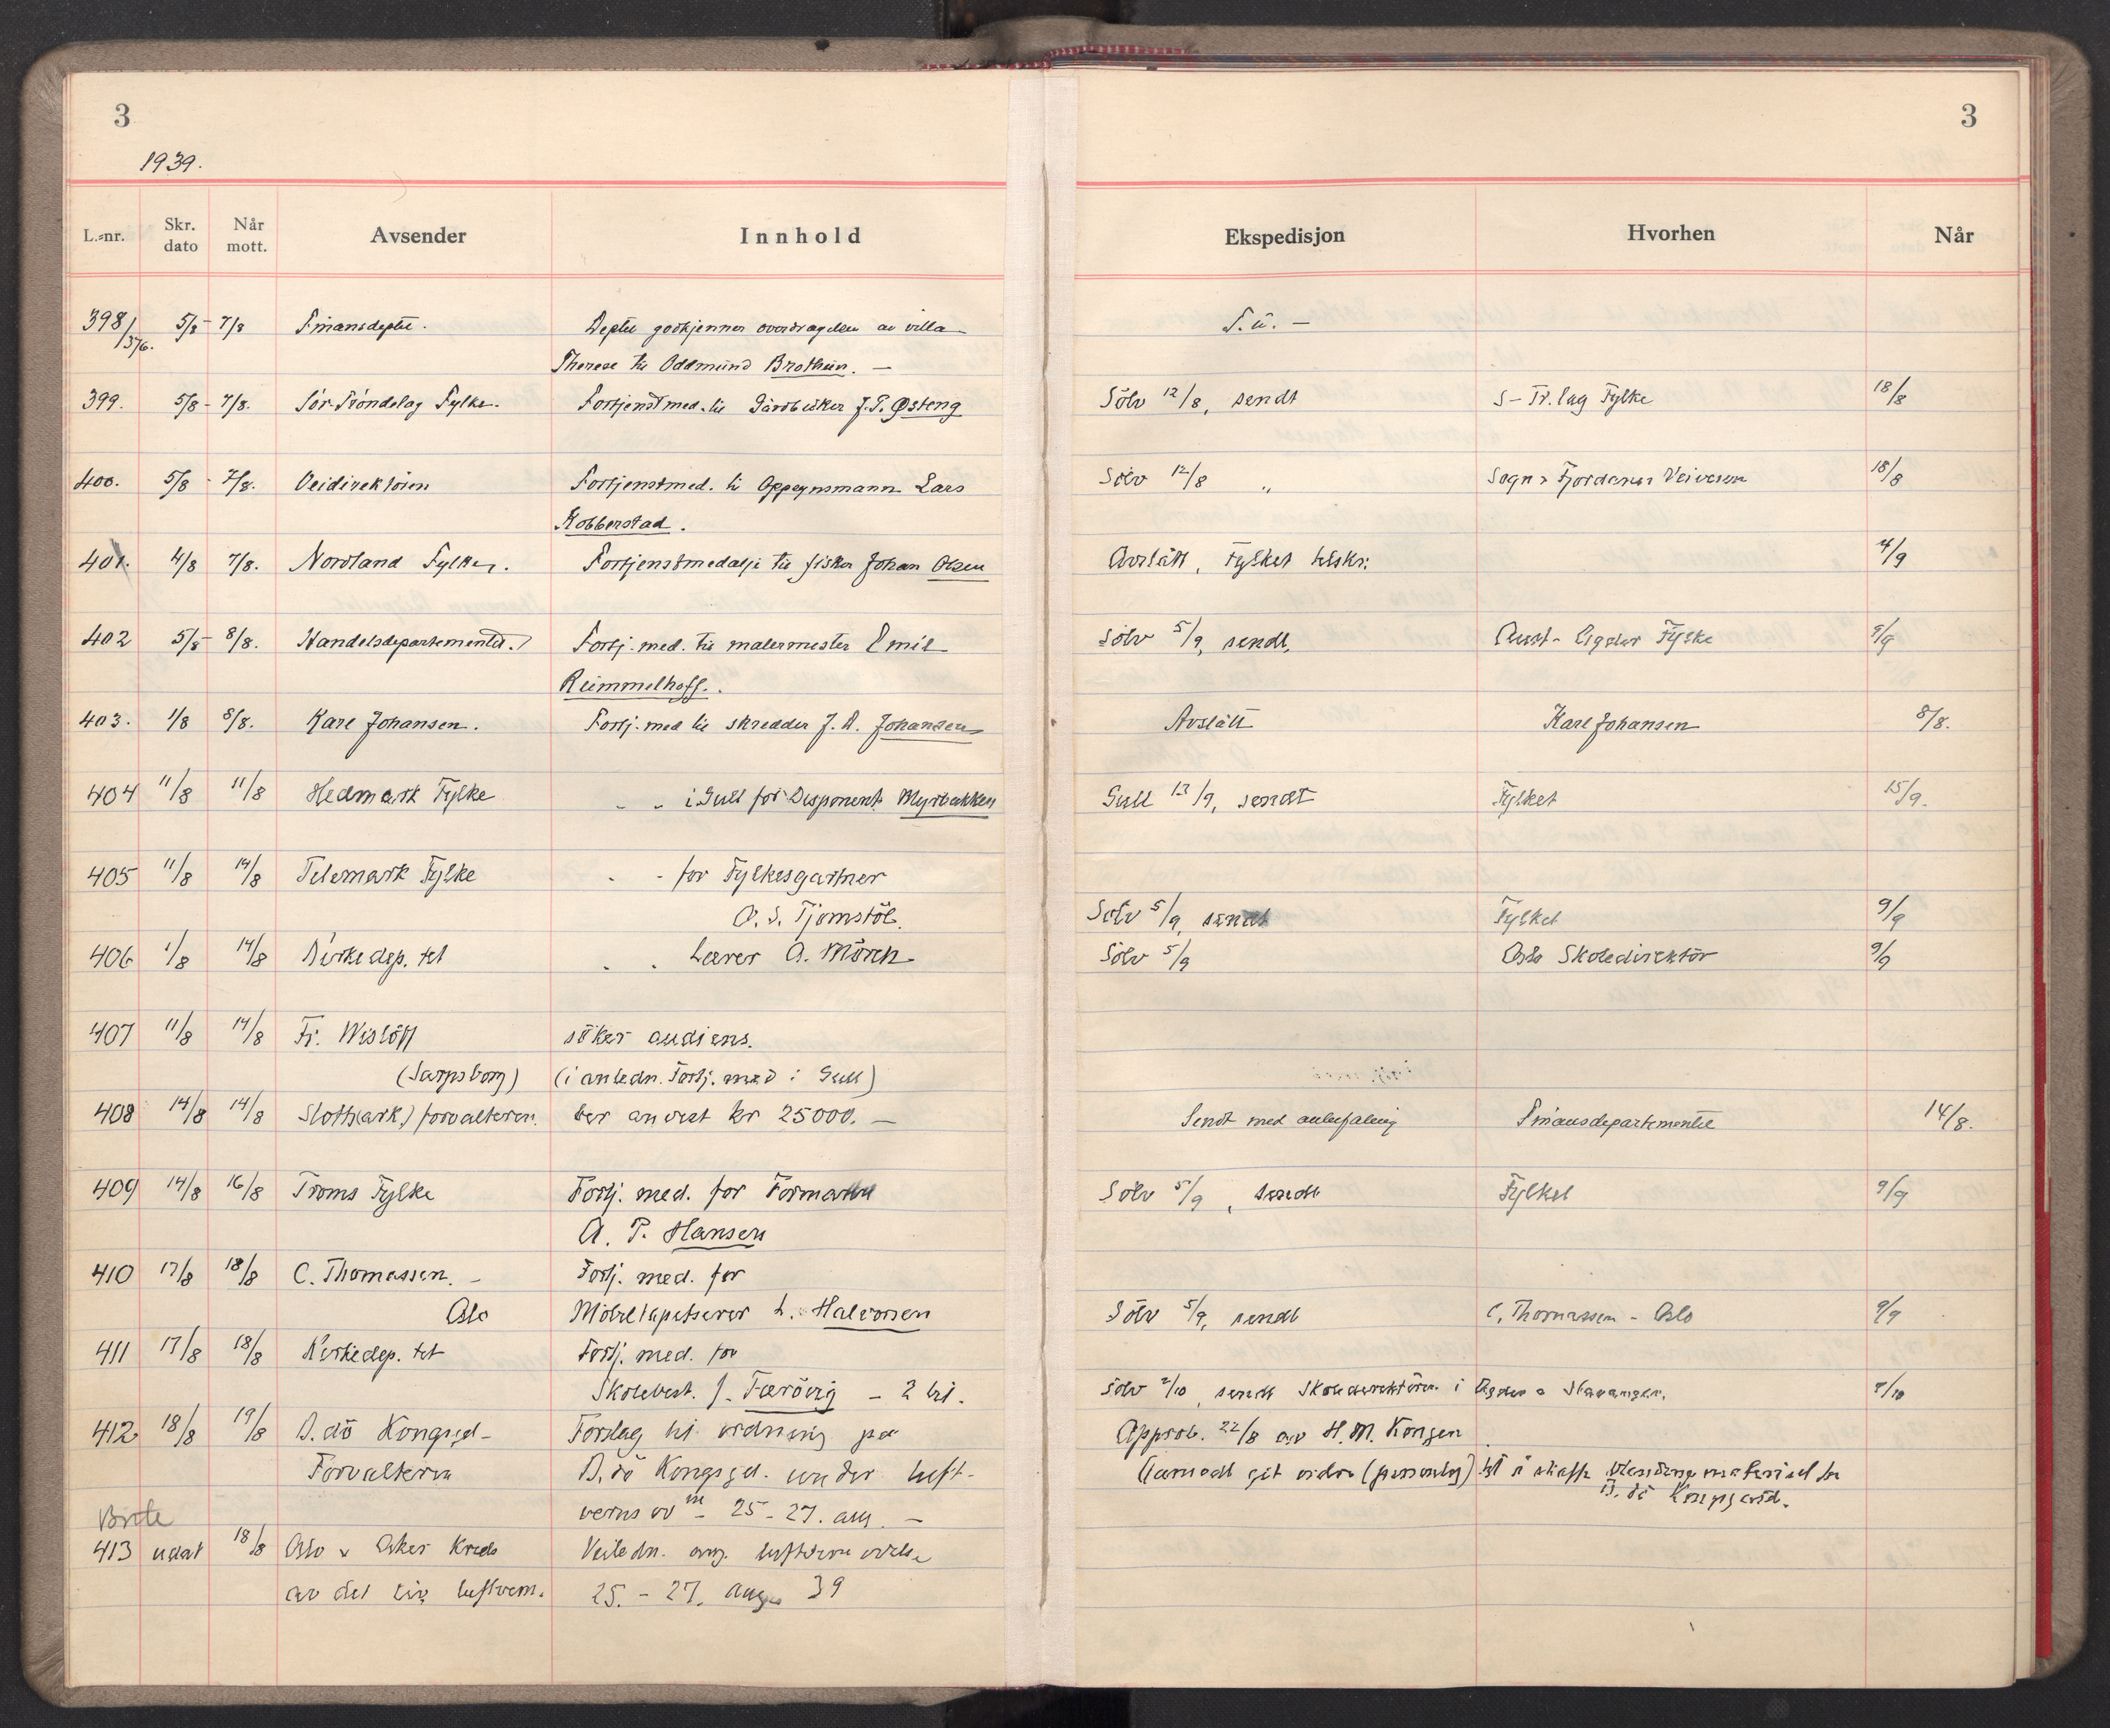 3
3
1939.
L.-nr. Skr. dato Når mott. Avsender Innhold Ekspedisjon Hvorhen Når
398/376. 5/8 - 7/8 Finansdeptet. Deptet godkjenner overdragelsen av villa S.ü. -
Therese til Oddmund Brotheim. -
399. 5/8 - 7/8. Sør-Trøndelag Fylke. Fortjenstmed. til Gårdbruker J. P. Østeng Sölv 12/8, sendt S-Tr.lag Fylke 18/8
400. 5/8 - 7/8. Veidirektören Fortjenstmed. til Oppsynsmann Lars Sölv 12/8 " Sogn & Fjordanes Veivesen 18/8
Kobberstad.
401. 4/8 7/8. Nordland Fylke. Fortjenstmedalje til fisker Johan Olsen Avslått, Fylket tilskr: 4/9
402 5/8 - 8/8. Handelsdepartementet. Fortj. med. til malermester Emil Sölv 5/9, sendt, Aust-Agder Fylke 9/9
Reimmelhoff.
403. 1/8 8/8. Kare Johansen. Fortj. med til skredder J. A. Johansen Avslått Kare Johansen 8/8.
404 11/8 11/8 Hedmark Fylke " " i Gull for Disponent Myrbakken Gull 13/9, sendt Fylket 15/9.
405 11/8 14/8 Telemark Fylke " " for Fylkesgartner
O. S. Tjomstöl. Sölv 5/9, sendt Fylket 9/9
406 1/8 14/8 Kirkedep. tet " " Lærer A. Mörch Sölv 5/9 Oslo Skoledirektör 9/9
407 11/8 14/8 Fr. Wislöff söker audiens.
(Sarpsborg) (i anledn. Fortj. med i Gull)
408 14/8 14/8 Slotts(ark.) forvalteren. ber anvist kr 25000. - Sendt med anbefaling Finansdepartementet 14/8.
409 14/8 16/8 Troms Fylke Fortj. med. for Formann Sölv 5/9, sendt Fylket 9/9
A. P. Hansen
410 17/8 18/8 C. Thomassen. - Fortj. med. for
Oslo Möbeltapetserer L. Halvorsen Sölv 5/9, sendt C. Thomassen - Oslo 9/9
411 17/8 18/8 Kirkedep. tet Fortj. med. for
Skolebest. J. Færövig - 2 bil. Sölv 2/10, sendt Skoledirektören i Agder o Stavanger.
412 18/8 19/8 B.dö Kongsgd- Forslag til ordning på Approb. 22/8 av H.M. Kongen
Forvalteren B.dö Kongsgd. under luft- (samtidt git ordre (personlig) til å skaffe materiel for
verns öv - 25 - 27. aug. - B. dö Kongsgård.
413 udat 18/8 Oslo & Aker Krets Veiledn. ang. luftvern övelse
av det siv luftvern. 25. - 27. aug 39